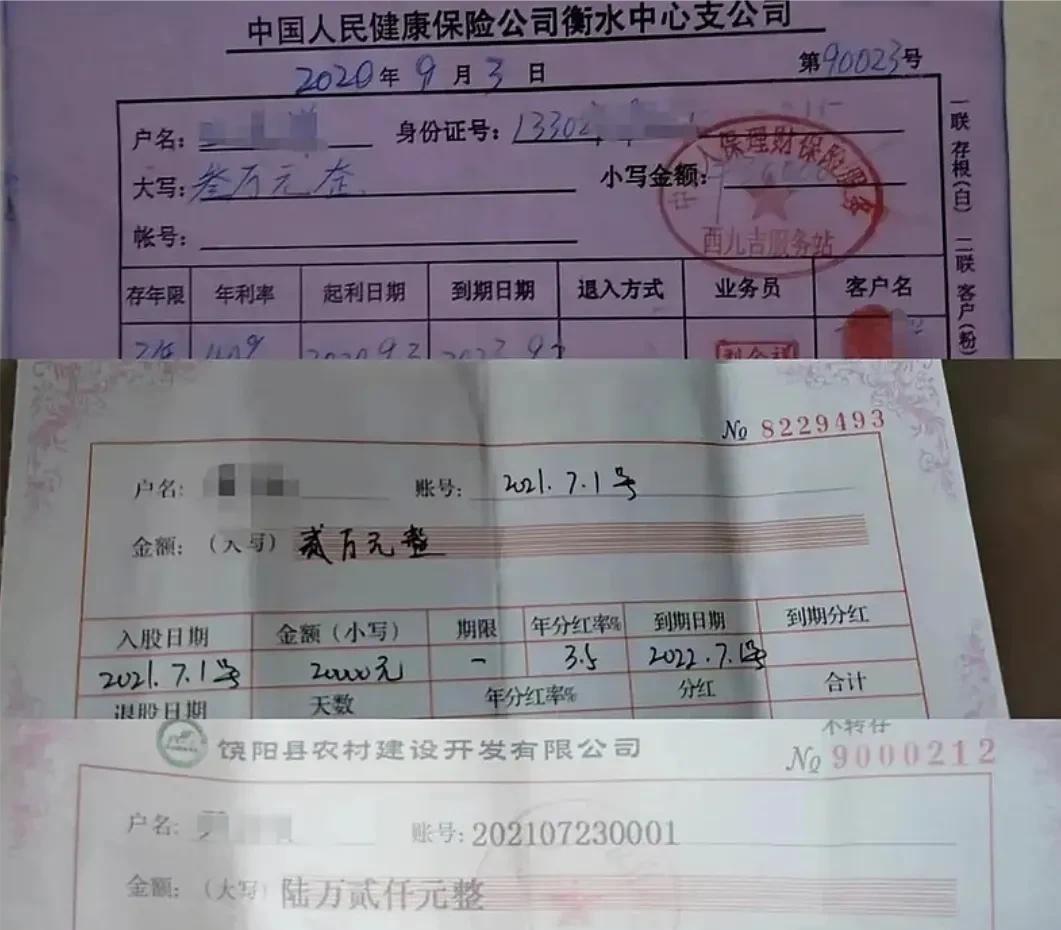 中国人民健康保险公司衡水中心支公司
2020年9月3日 第90023号
户名: 身份证号:1330
大写:叁万元整 小写金额:
帐号:
人保理财保险服务
西九吉服务站
一联 存根(白) 二联 客户(粉)
存年限 年利率 起利日期 到期日期 退入方式 业务员 客户名
№ 8229493
户名: 账号: 2021.7.1号
金额:(大写) 贰万元整
入股日期 金额(小写) 期限 年分红率% 到期日期 到期分红
2021.7.1号 20000元 一 3.5 2022.7.1号
退股日期 天数 年分红率% 分红 合计
不转存
饶阳县农村建设开发有限公司 № 9000212
户名: 账号:202107230001
金额:(大写) 陆万贰仟元整